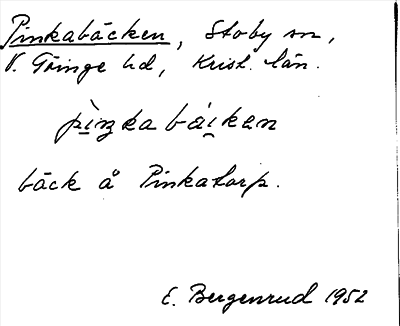 Pinkabäcken, Stoby sn,
V. Göinge hd, Krist. län.
pìŋkabái̯ken
bäck å Pinkatorp.
E. Bergenrud 1952